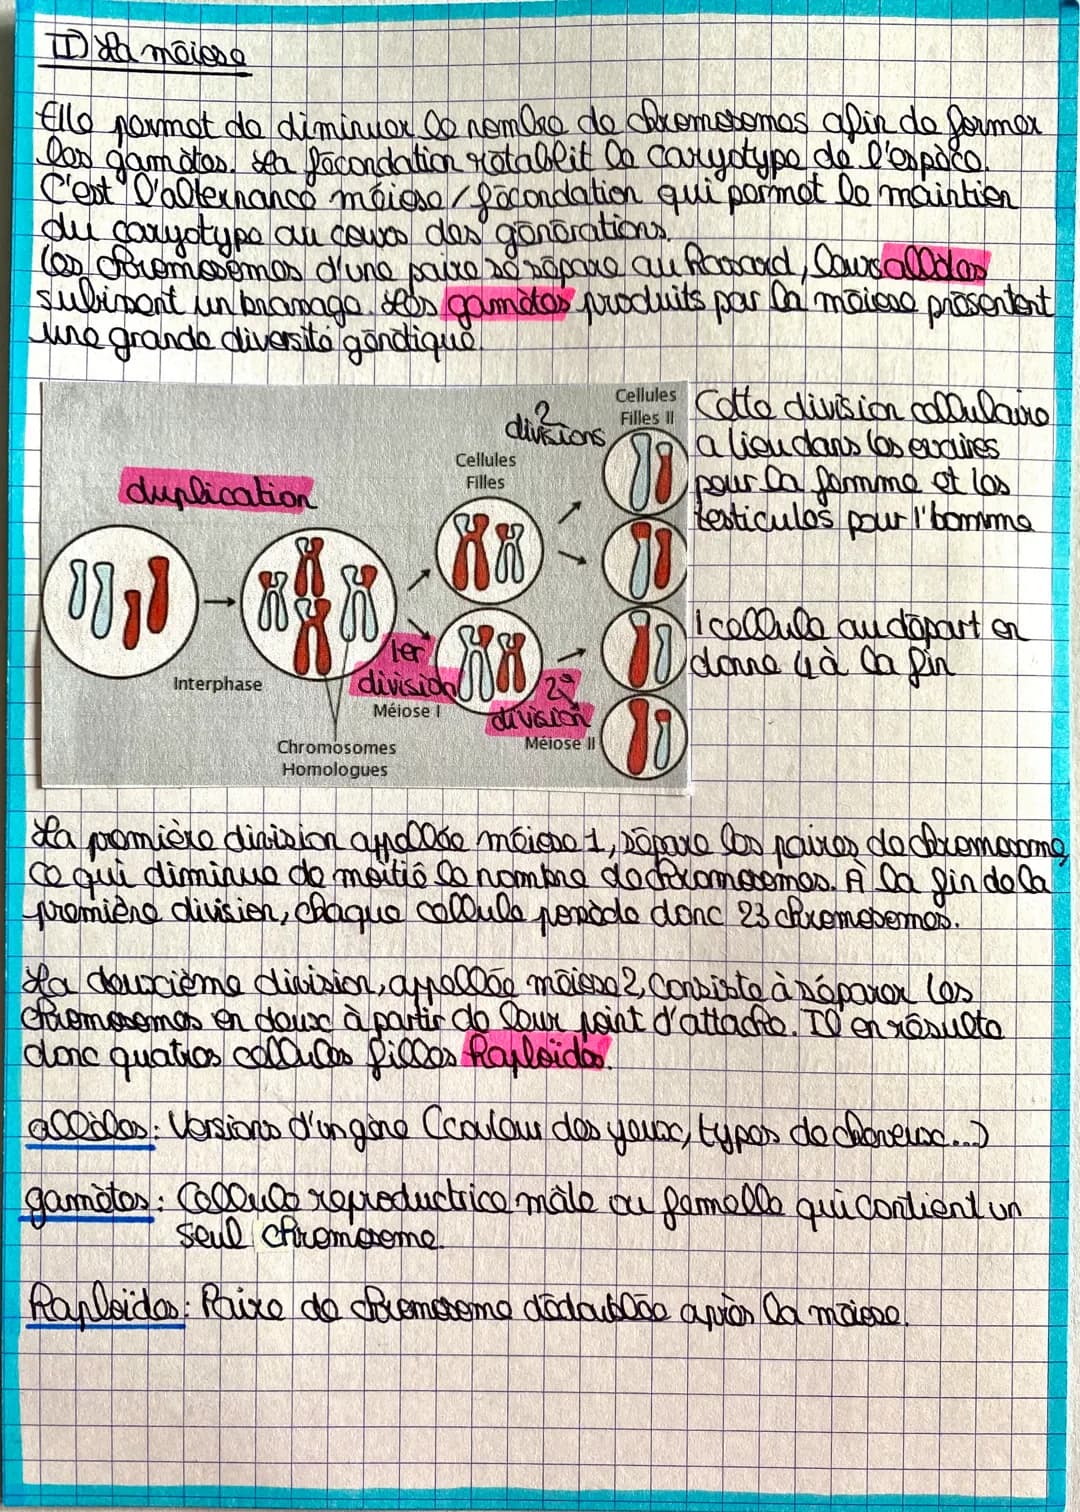 II) La méiose
Elle permet de diminuer le nombre de chromosomes afin de former
les gamètes. La fécondation rétablit le caryotype de l'espèce.
C'est l'alternance méiose/fécondation qui permet le maintien
du caryotype au cours des générations.
Les chromosomes d'une paire se sépare au hasard, leurs allèles
subissent un brassage. Les gamètes produits par la méiose présentent
une grande diversité géndtique.
Cellules
Filles II
2
divisions
Cellules
Filles
duplication
Interphase
1er
division
Méiose I
2e
division
Méiose II
Chromosomes
Homologues
Cette division cellulaire
a lieu dans les ovaires
pour la femme et les
testicules pour l'homme
1 cellule au départ en
donne 4 à la fin
La première division appellée méiose 1, sépare les paires de chromosome,
ce qui diminue de moitié le nombre de chromosomes. À la fin de la
première division, chaque cellule possède donc 23 chromosomes.
La deuxième division, appellée méiose 2, consiste à séparer les
chromosomes en deux à partir de leur point d'attache. Il en résulte
donc quatres cellules filles haploïdes.
allèles: Versions d'un gène (couleur des yeux, types de cheveux...)
gamètes: Cellule reproductrice mâle ou femelle qui contient un
seul chromosome.
haploïdes: Paire de chromosome dédoublée après la méiose.